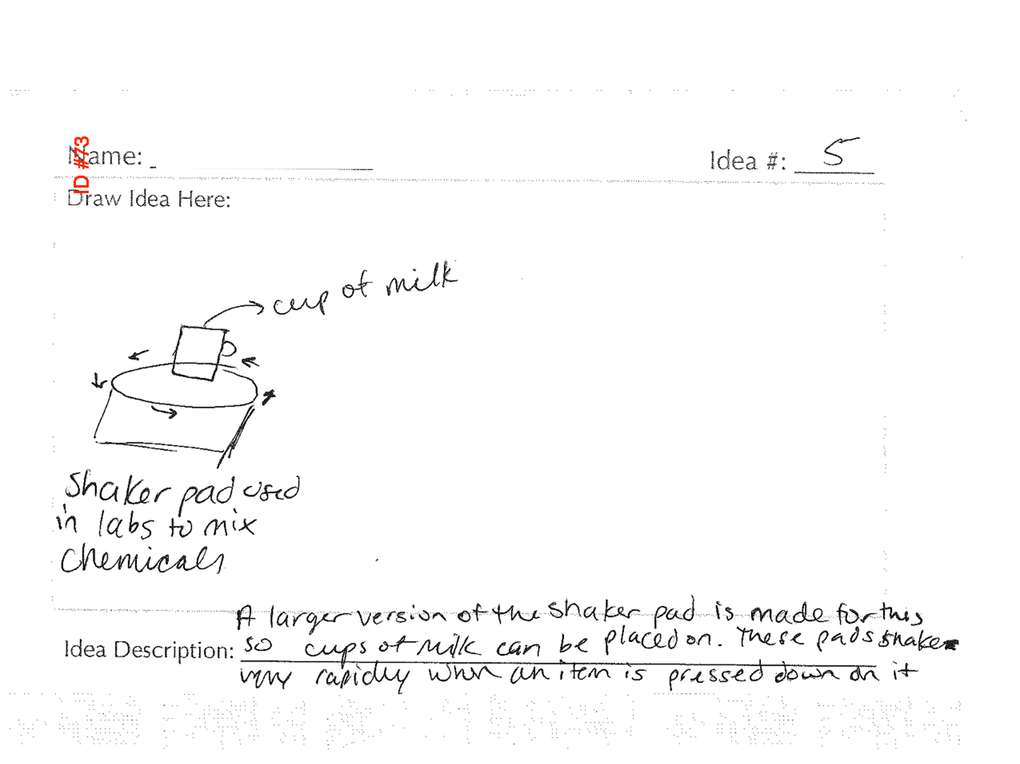 ID #73
Name:
Idea #: 5
Draw Idea Here:
cup of milk
Shaker pad used
in labs to mix
chemicals
A larger version of the shaker pad is made for this
Idea Description: so cups of milk can be placed on. These pads shake
very rapidly when an item is pressed down on it